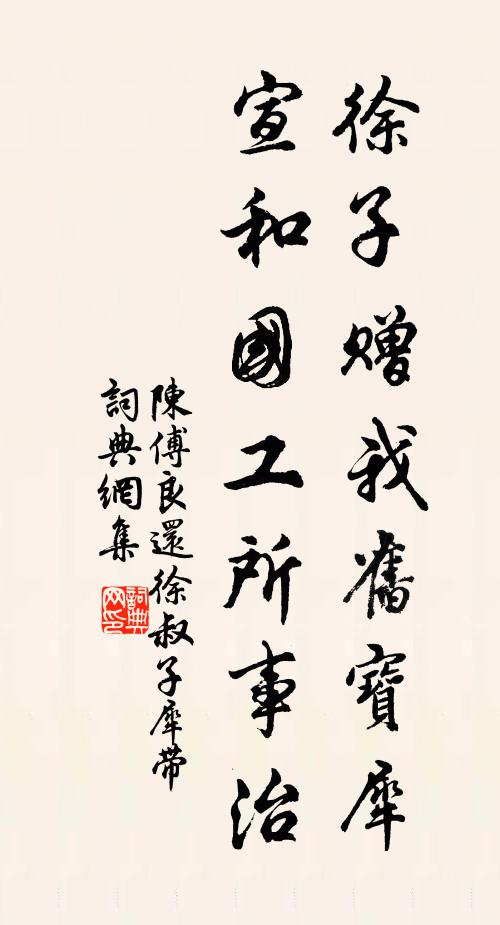 徐子贈我舊寶犀
宣和國工所事治
陳傅良還徐叔子犀帶
詞典網集
詞典網印